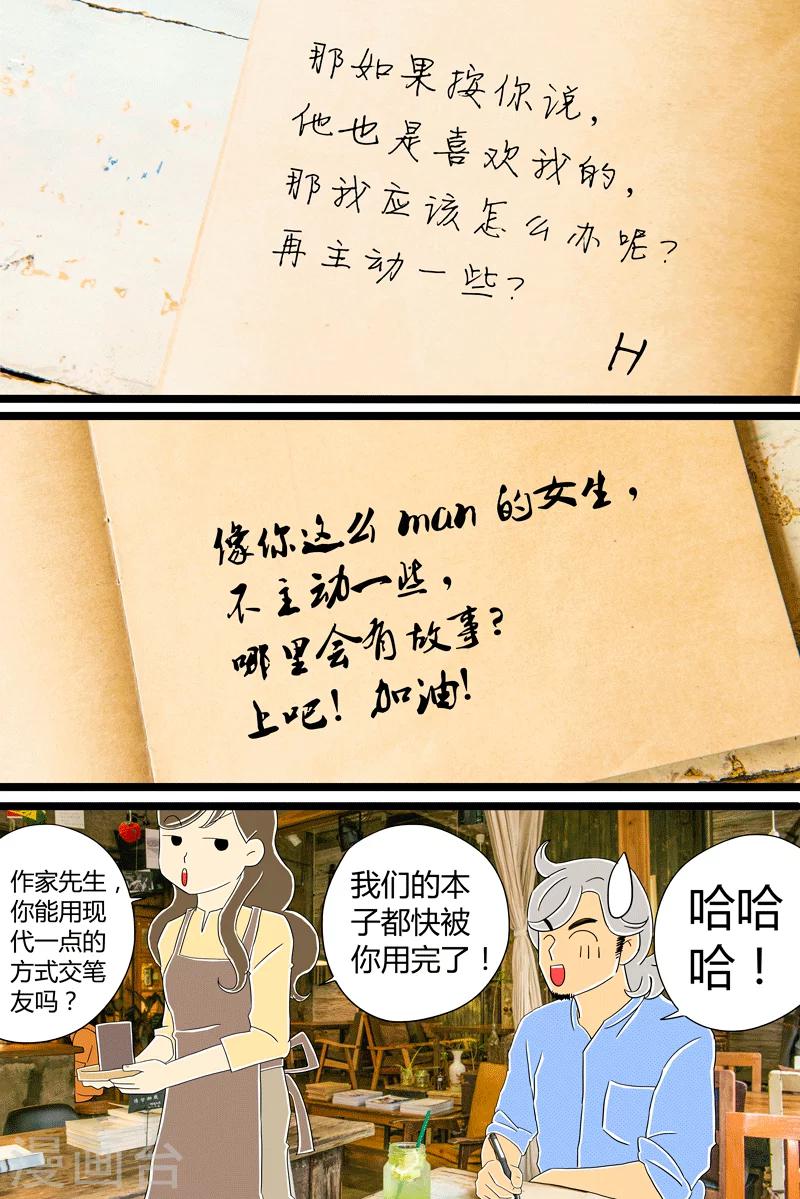 那如果按你说，
他也是喜欢我的，
那我应该怎么办呢？
再主动一些？
H
像你这么 man 的女生，
不主动一些，
哪里会有故事？
上吧！加油！
作家先生，
你能用现
代一点的
方式交笔
友吗？
我们的本
子都快被
你用完了！
哈哈
哈！
漫画台